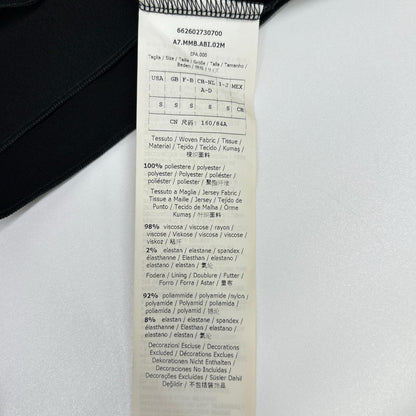 662602730700
A7.MMB.ABI.02M
EPA.000
Taglia / Size / Taille / Größe / Talla / Tamanho /
Beden / 규격 / サイズ
USA GB F-B CH-NL A-D I-J MEX
S S S S S CH
CN 尺码: 160/84A
Tessuto / Woven Fabric / Tissue /
Material / Tejido / Tecido / Kumaş /
梭织面料
100% poliestere / polyester /
polyester / Polyester / poliéster /
poliéster / polyester / 聚酯纤维
Tessuto a Maglia / Jersey Fabric /
Tissue a Maille / Jersey / Tejido de
Punto / Tecido de Malha / Örme
Kumaş / 针织面料
98% viscosa / viscose / rayon /
viscose / Viskose / viscosa / viscose /
viskoz / 粘纤
2% elastan / elastane / spandex /
élasthanne / Elasthan / elastano /
elastano / elastan / 氨纶
Fodera / Lining / Doublure / Futter /
Forro / Forro / Astar / 里布
92% poliammide / polyamide /nylon /
polyamide / Polyamid / poliamida /
poliamida / polyamid / 锦纶
8% elastan / elastane / spandex /
élasthanne / Elasthan / elastano /
elastano / elastan / 氨纶
Decorazioni Escluse / Decorations
Excluded / Décorations Exclues /
Dekorationen Nicht Enthalten /
Decoraciones No Incluidas /
Decorações Excluídas / Süsler Dahil
Değildir / 不包括装饰品